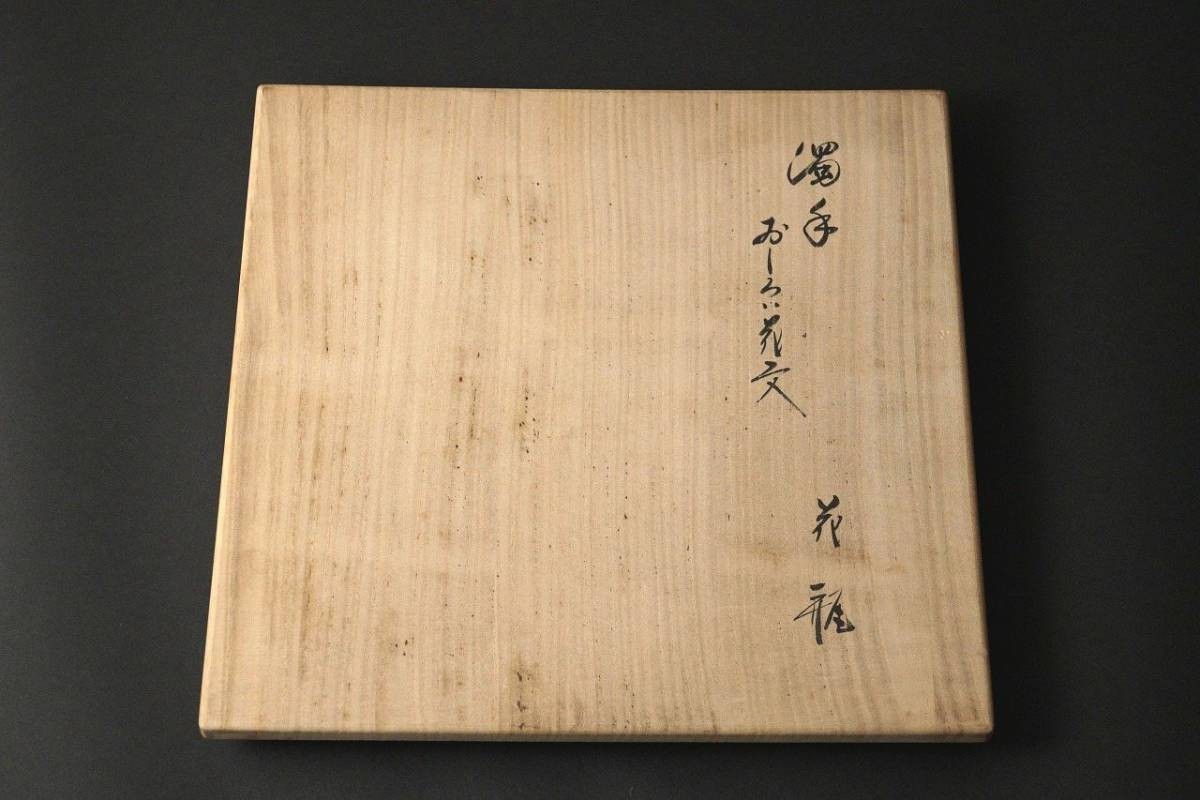 濁手
おしろい花文
花瓶